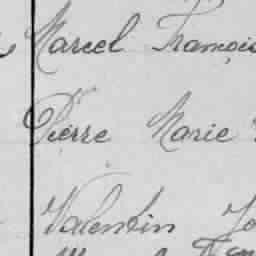 Marcel François
Pierre Marie
Valentin Jo